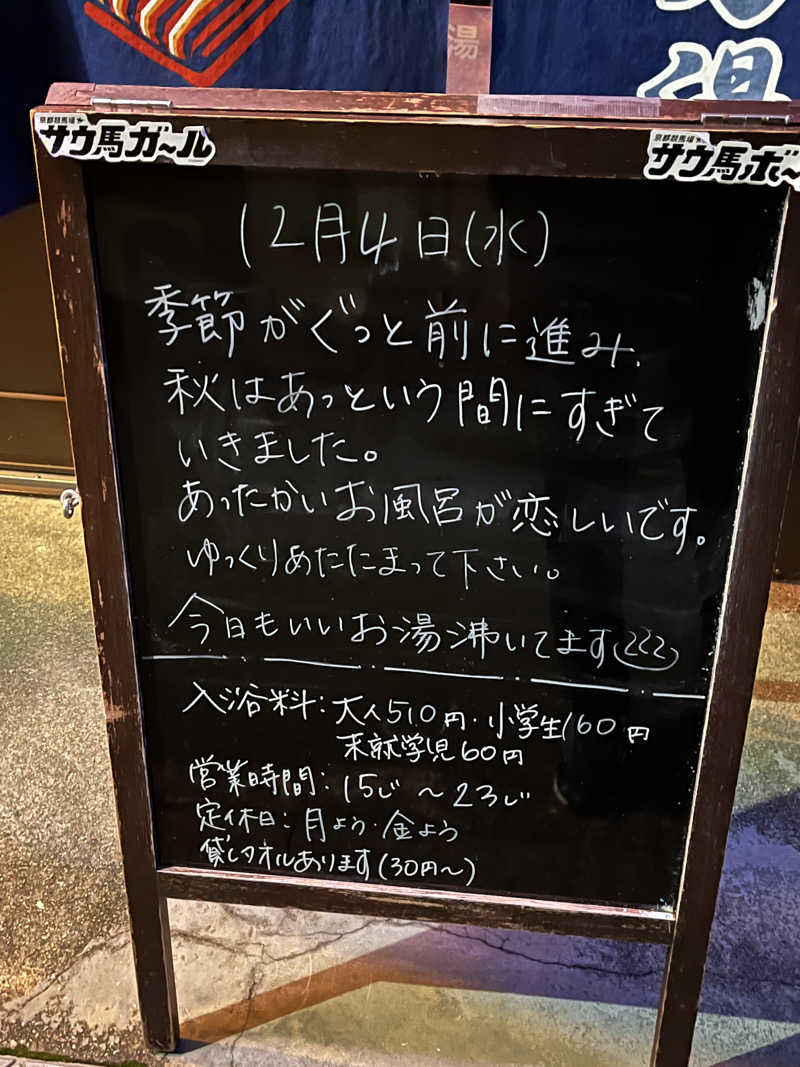 湯
湯
京都競馬場
サウ馬ガール
京都競馬場
サウ馬ボ〜
12月4日(水)
季節がぐっと前に進み、
秋はあっという間にすぎて
いきました。
あったかいお風呂が恋しいです。
ゆっくりあたたまって下さい。
今日もいいお湯沸いてます
入浴料:大人510円・小学生160円
未就学児60円
営業時間:15じ〜23じ
定休日:月よう・金よう
貸しタオルあります(30円〜)